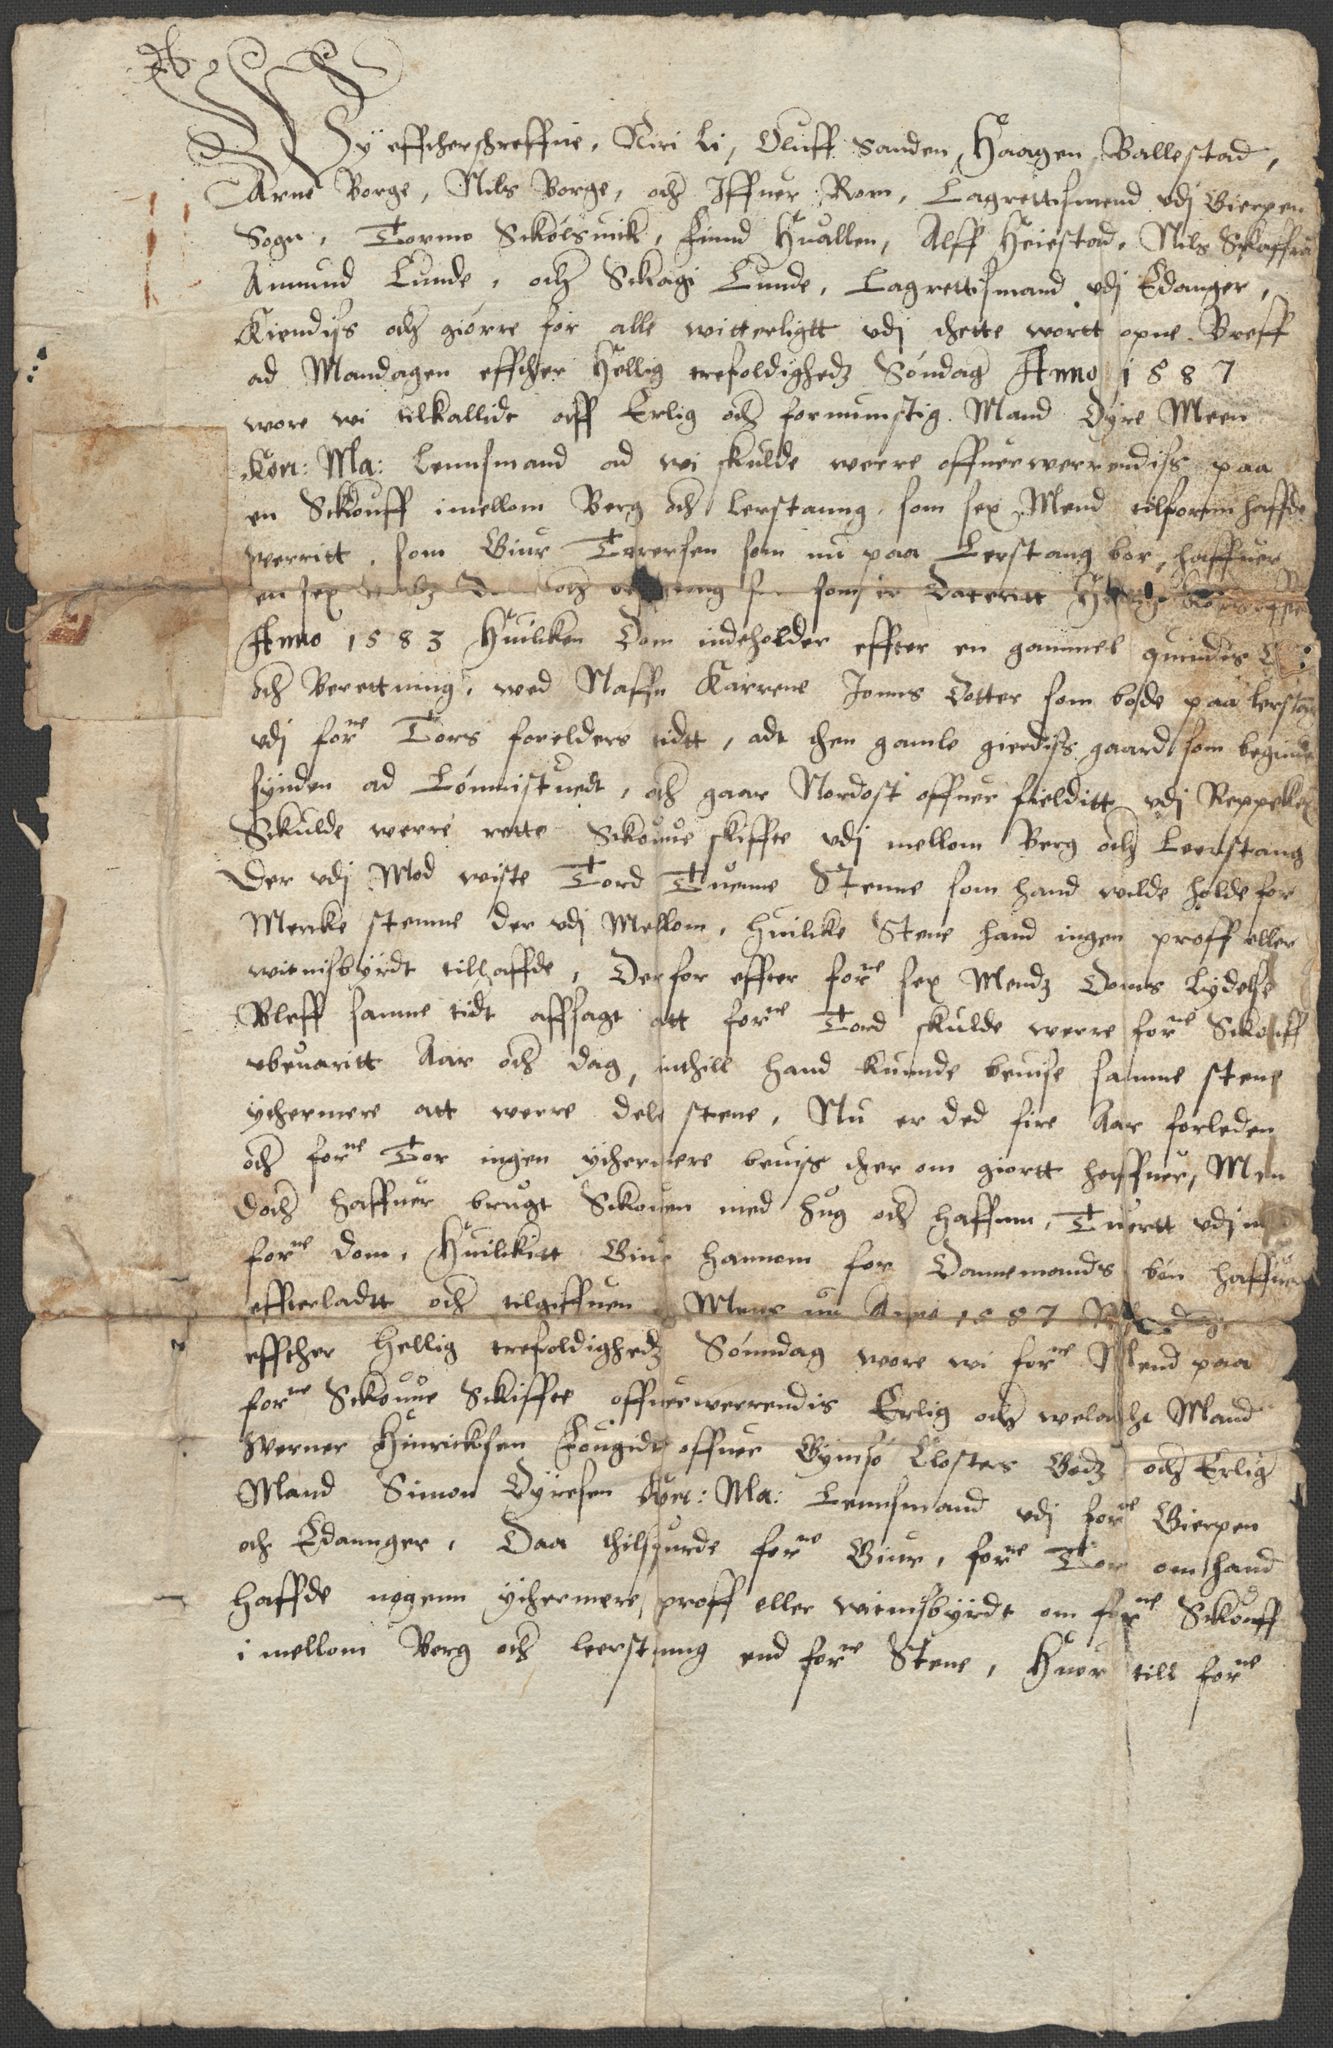 Wÿ effcherschreffne, Niri Li, Oluff Sanden, Haagen Ballestad,
Arne Borge, Nils Borge, och Iffuer Rom, Lagrettismend vdj Gierpen
Sogn, Tormo Skölsuik, Finnd Huallen, Alff Heiestad, Nils Skaffua
Amund Lunde, och Skagi Lunde, Lagrettismand vdj Edanger,
Kiendiss och giörre for alle witterligtt vdj dette wortt opne Breff
ad Mandagen effther Hellig trefoldighedz Söndag Anno 1587
wore wi tilkallide aff Erlig och fornumstig Mand Dyre Meen
Kon: Ma: lennsmand ad wi skulde werre offuerwerrendiss paa
en Skouff imellom Berg och Lerstanng, som sex Mend tilforinn haffde
werritt, som Giur Torersen som nu paa Lerstang bor, haffuer
en sex som er Daterett
Anno 1583 Huilken Dom indeholder effter en gammel quindis
och Berettning, wed Naffn Karrene Jonns Dotter som boede paa Lerstang
vdj forne Tors forelders tidtt, adt then gamle gierdiss gaard som beginder
synden ad Lönnistuedt, och gaar Nordost offuer fielditt vdj Reppekier
Skulde werre rette Skouue skiffte vdj mellom Berg och Leerstang
Der vdj Mod wiste Tord Tuenne Stenne som hand wilde holde for
Mercke stenne der vdj Mellom, huilcke Stene hand ingen proff eller
witnisbyrdt till haffde, Derfor effter forne sex Mendz Doms lydelse
Bleff samme tidt affsagt att forne Tord skulde werre forne Skouff
vbeuaritt Aar och dag, inthill hand kunde beuise samme stene
ythermere att werre dele stene, Nu er ded fire Aar forleden
och forne Tor ingen ythermere beuiss ther om giortt haffuer, Men
doch haffuer brugt Skouen med hug och haffunn, Tuertt vdj mod
forne dom, Huilckitt Giur hannom for Dannemends bön haffuer
effterladtt och tilgiffuen Mens nu Anno 1587
effther hellig trefoldighedz Sönndag wore wi forne Mend paa
forne Skouue Skiffte offuerwerrendis Erlig och welacht Mand
Werner Hinrickssen Fougidt offuer Gimsö Closters Godz och Erlig
Mand Simon Dyresen Kon: Ma: Lennsmand vdj forne Gierpen
och Edannger, Daa thilspurde forne Giur, forne Tor om hand
haffde nogenn ythermere proff eller witnisbyrdt om forne Skouff
i mellom Berg och leerstanng end forne Stene, Huor till forne